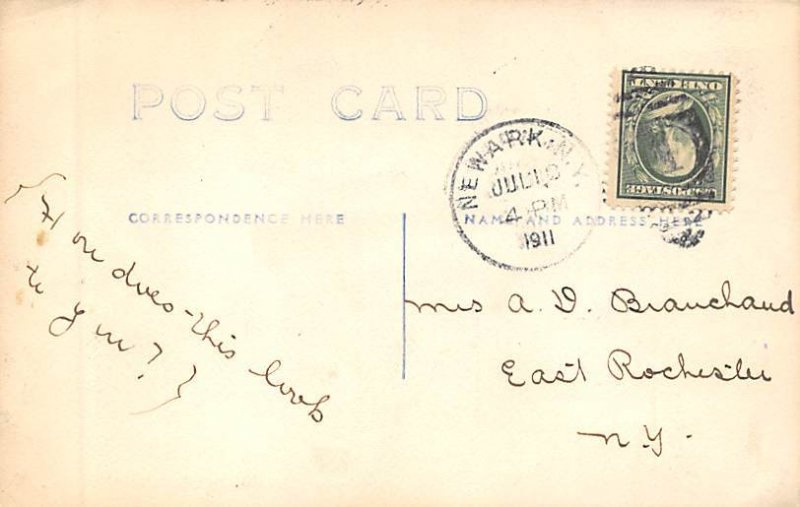 POST CARD
NEWARK, N.Y.
4 PM
1911
ONE CENT
U.S. POSTAGE
CORRESPONDENCE HERE
NAME AND ADDRESS HERE
{How does this look
to you?}
Mrs A. D. Branchaud
East Rochester
N.Y.